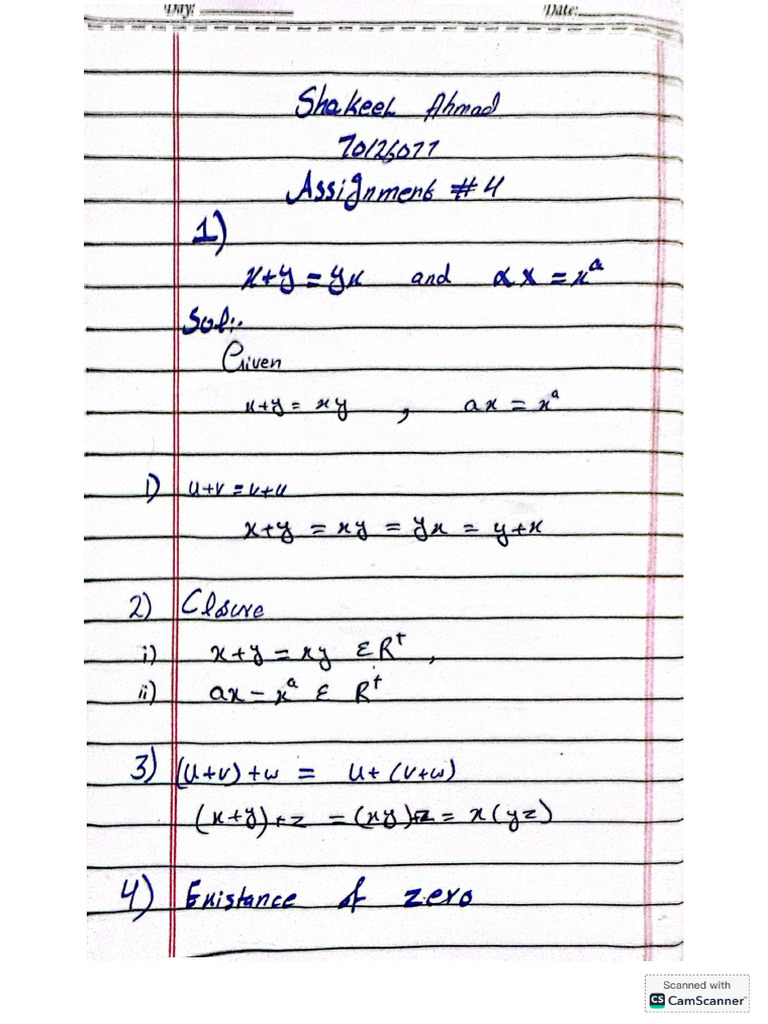 Day: Date:
Shakeel Ahmad
70126077
Assignment #4
1)
x+y = yx and αx = x^a
Sol:.
Given
x+y = xy , ax = x^a
1) u+v = v+u
x+y = xy = yx = y+x
2) Closure
i) x+y = xy ε R^+ ,
ii) ax = x^a ε R^+
3) (u+v)+w = u+(v+w)
(x+y)+z = (xy)+z = x(yz)
4) Existance of zero
Scanned with
CS CamScanner